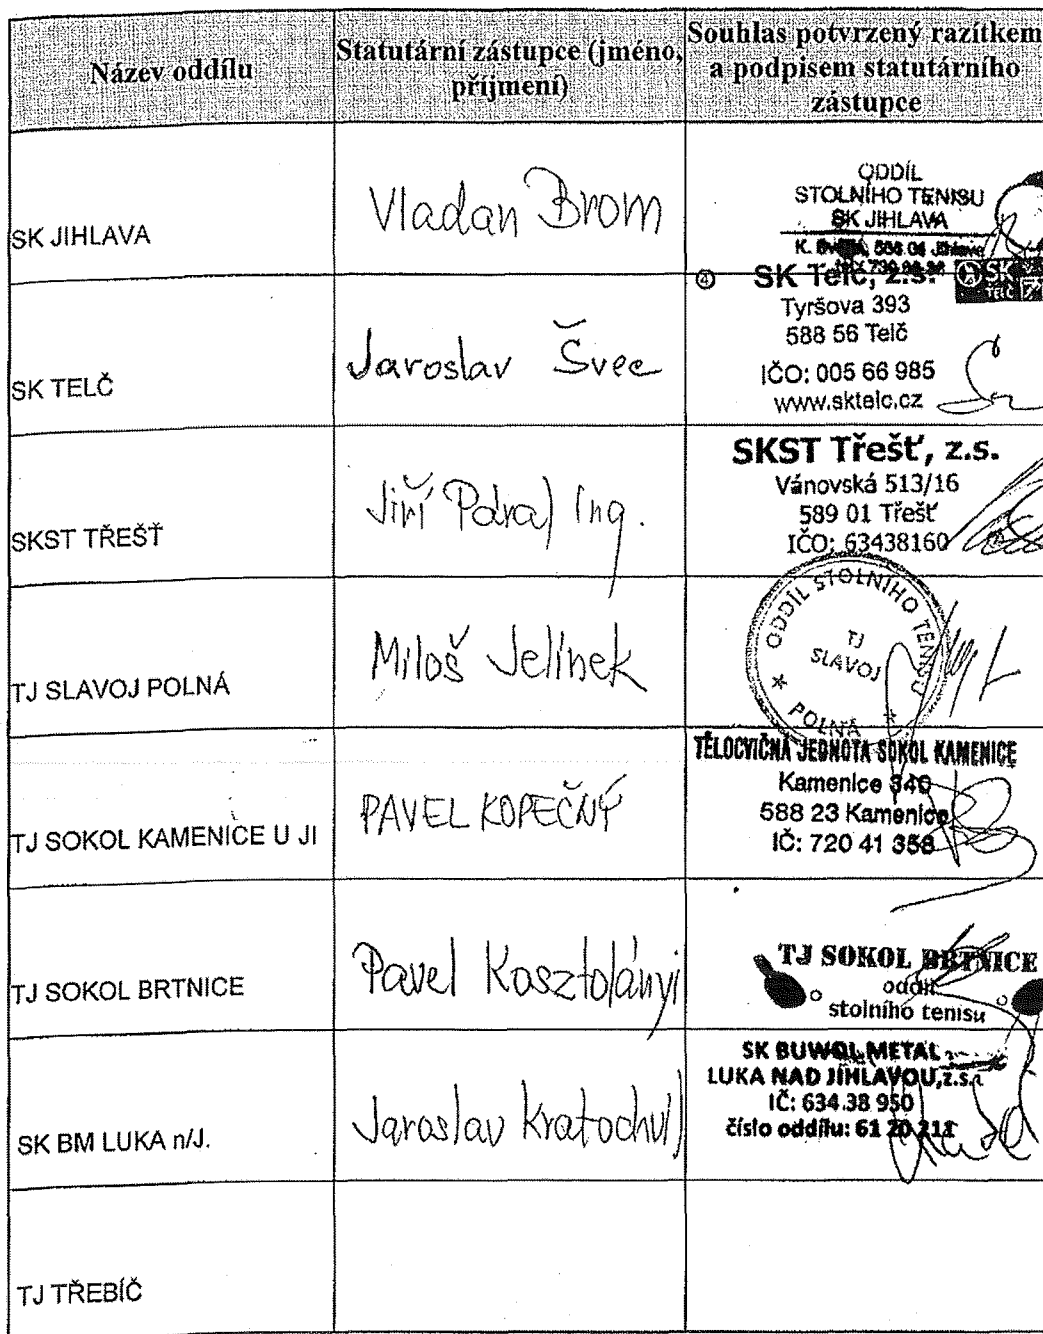 Název oddílu
Statutární zástupce (jméno,
příjmení)
Souhlas potvrzený razítkem
a podpisem statutárního
zástupce
SK JIHLAVA
Vladan Brom
ODDÍL
STOLNÍHO TENISU
SK JIHLAVA
SK TELČ
Jaroslav Švec
④ SK Telč, z.s.
SK
TELČ
Tyršova 393
588 56 Telč
IČO: 005 66 985
www.sktelc.cz
SKST TŘEŠŤ
Jiří Ing.
SKST Třešť, z.s.
Vánovská 513/16
589 01 Třešť
IČO: 63438160
TJ SLAVOJ POLNÁ
Miloš Jelínek
ODDÍL STOLNÍHO TENISU
TJ
SLAVOJ
POLNÁ
TJ SOKOL KAMENICE U JI
PAVEL KOPEČNÝ
TĚLOCVIČNÁ JEDNOTA SOKOL KAMENICE
Kamenice 340
588 23 Kamenice
IČ: 720 41 358
TJ SOKOL BRTNICE
Pavel Kosztolányi
TJ SOKOL BRTNICE
oddíl
stolního tenisu
SK BM LUKA n/J.
Jaroslav Kratochvíl
SK BUWOL METAL
LUKA NAD JIHLAVOU,z.s.
IČ: 634 38 950
číslo oddílu: 61 20 211
TJ TŘEBÍČ